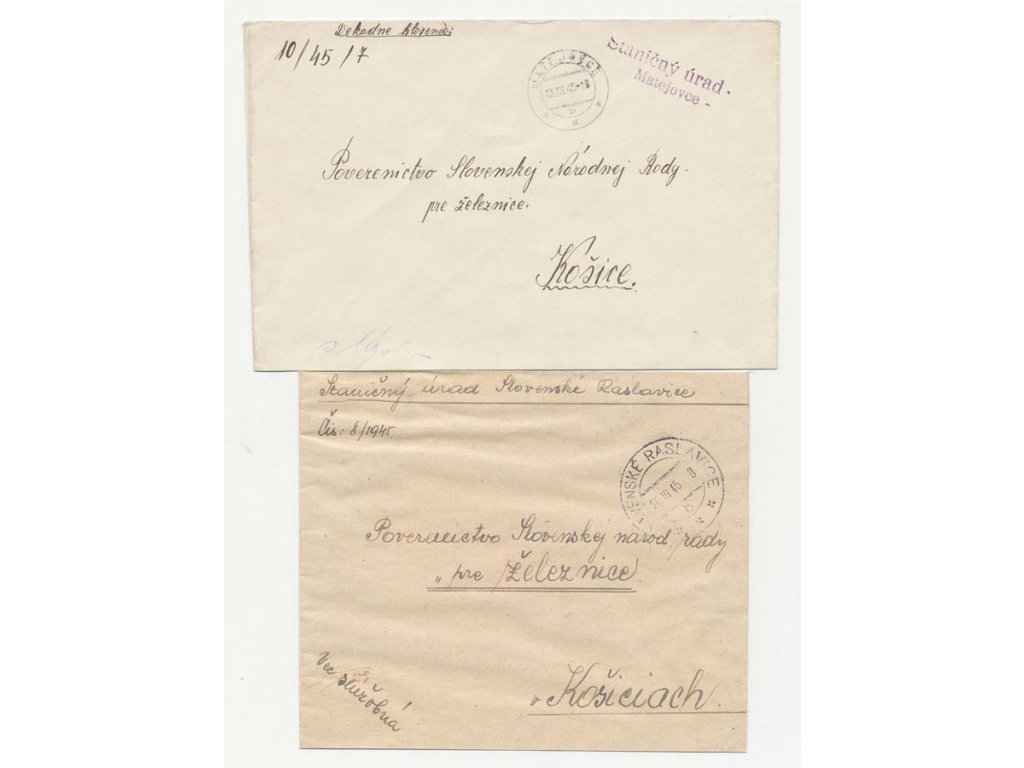 Dekadne hlásenie:
10/45/7
MATEJOVCE
13.III.45-18
Staničný úrad.
Matejovce -
Poverenictvo Slovenskej Národnej Rady.
pre železnice.
Košice.
Staničný úrad Slovenské Raslavice
Čís: 8/1945
VENSKÉ RASLAVICE
26.III.45 8
b
Poverenictvo Slovenskej národ. rády
„pre železnice
Vec služobná
v Košiciach.